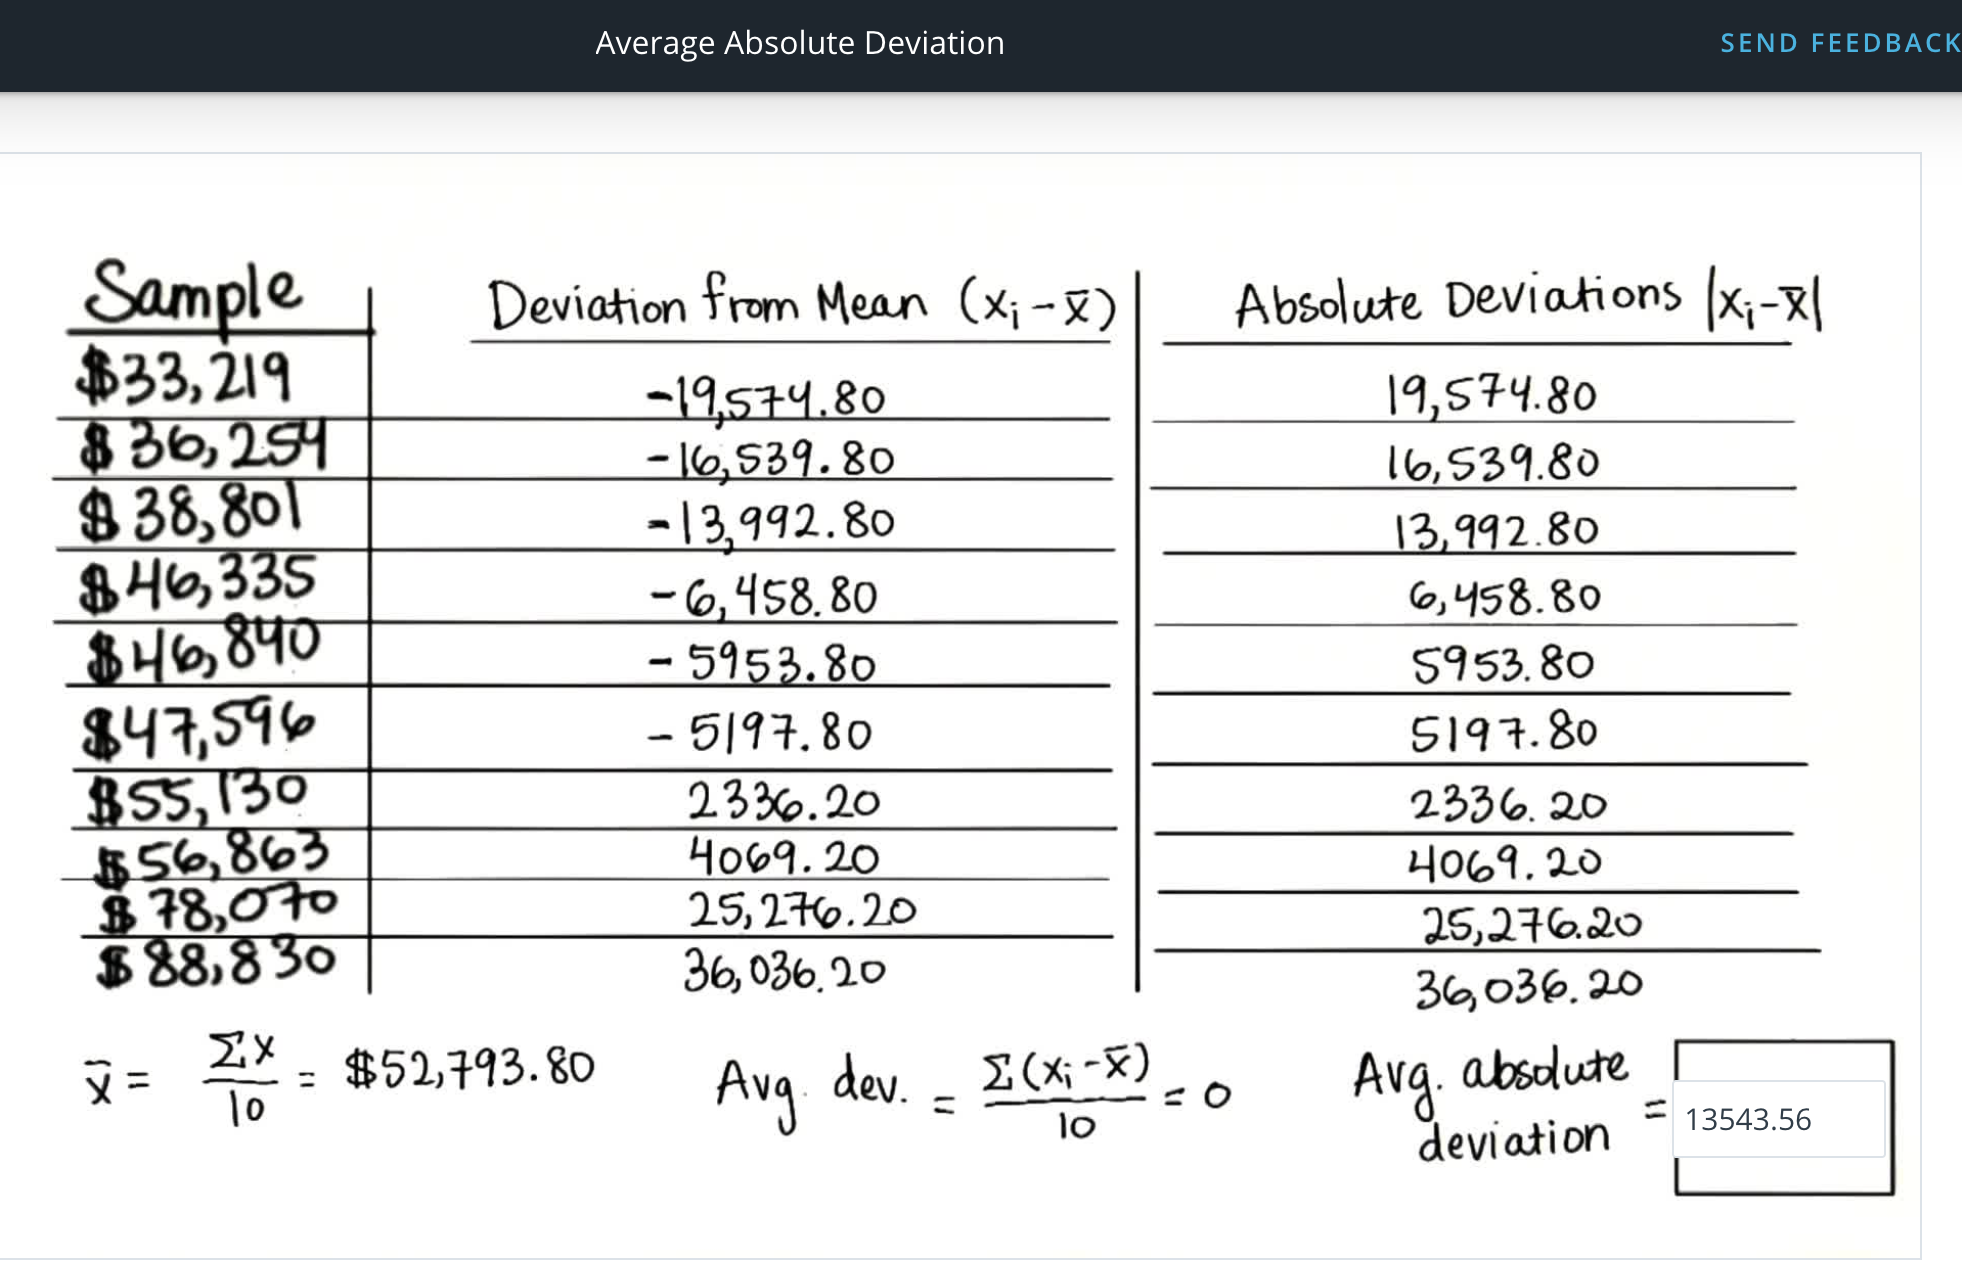 Average Absolute Deviation
SEND FEEDBACK
Sample Deviation from Mean (xᵢ - x̄) Absolute Deviations |xᵢ-x̄|
$33,219 -19,574.80 19,574.80
$36,254 -16,539.80 16,539.80
$38,801 -13,992.80 13,992.80
$46,335 -6,458.80 6,458.80
$46,840 -5953.80 5953.80
$47,596 -5197.80 5197.80
$55,130 2336.20 2336.20
$56,863 4069.20 4069.20
$78,070 25,276.20 25,276.20
$88,830 36,036.20 36,036.20
x̄ = Σx/10 = $52,793.80
Avg. dev. = Σ(xᵢ-x̄)/10 = 0
Avg. absolute deviation = 13543.56